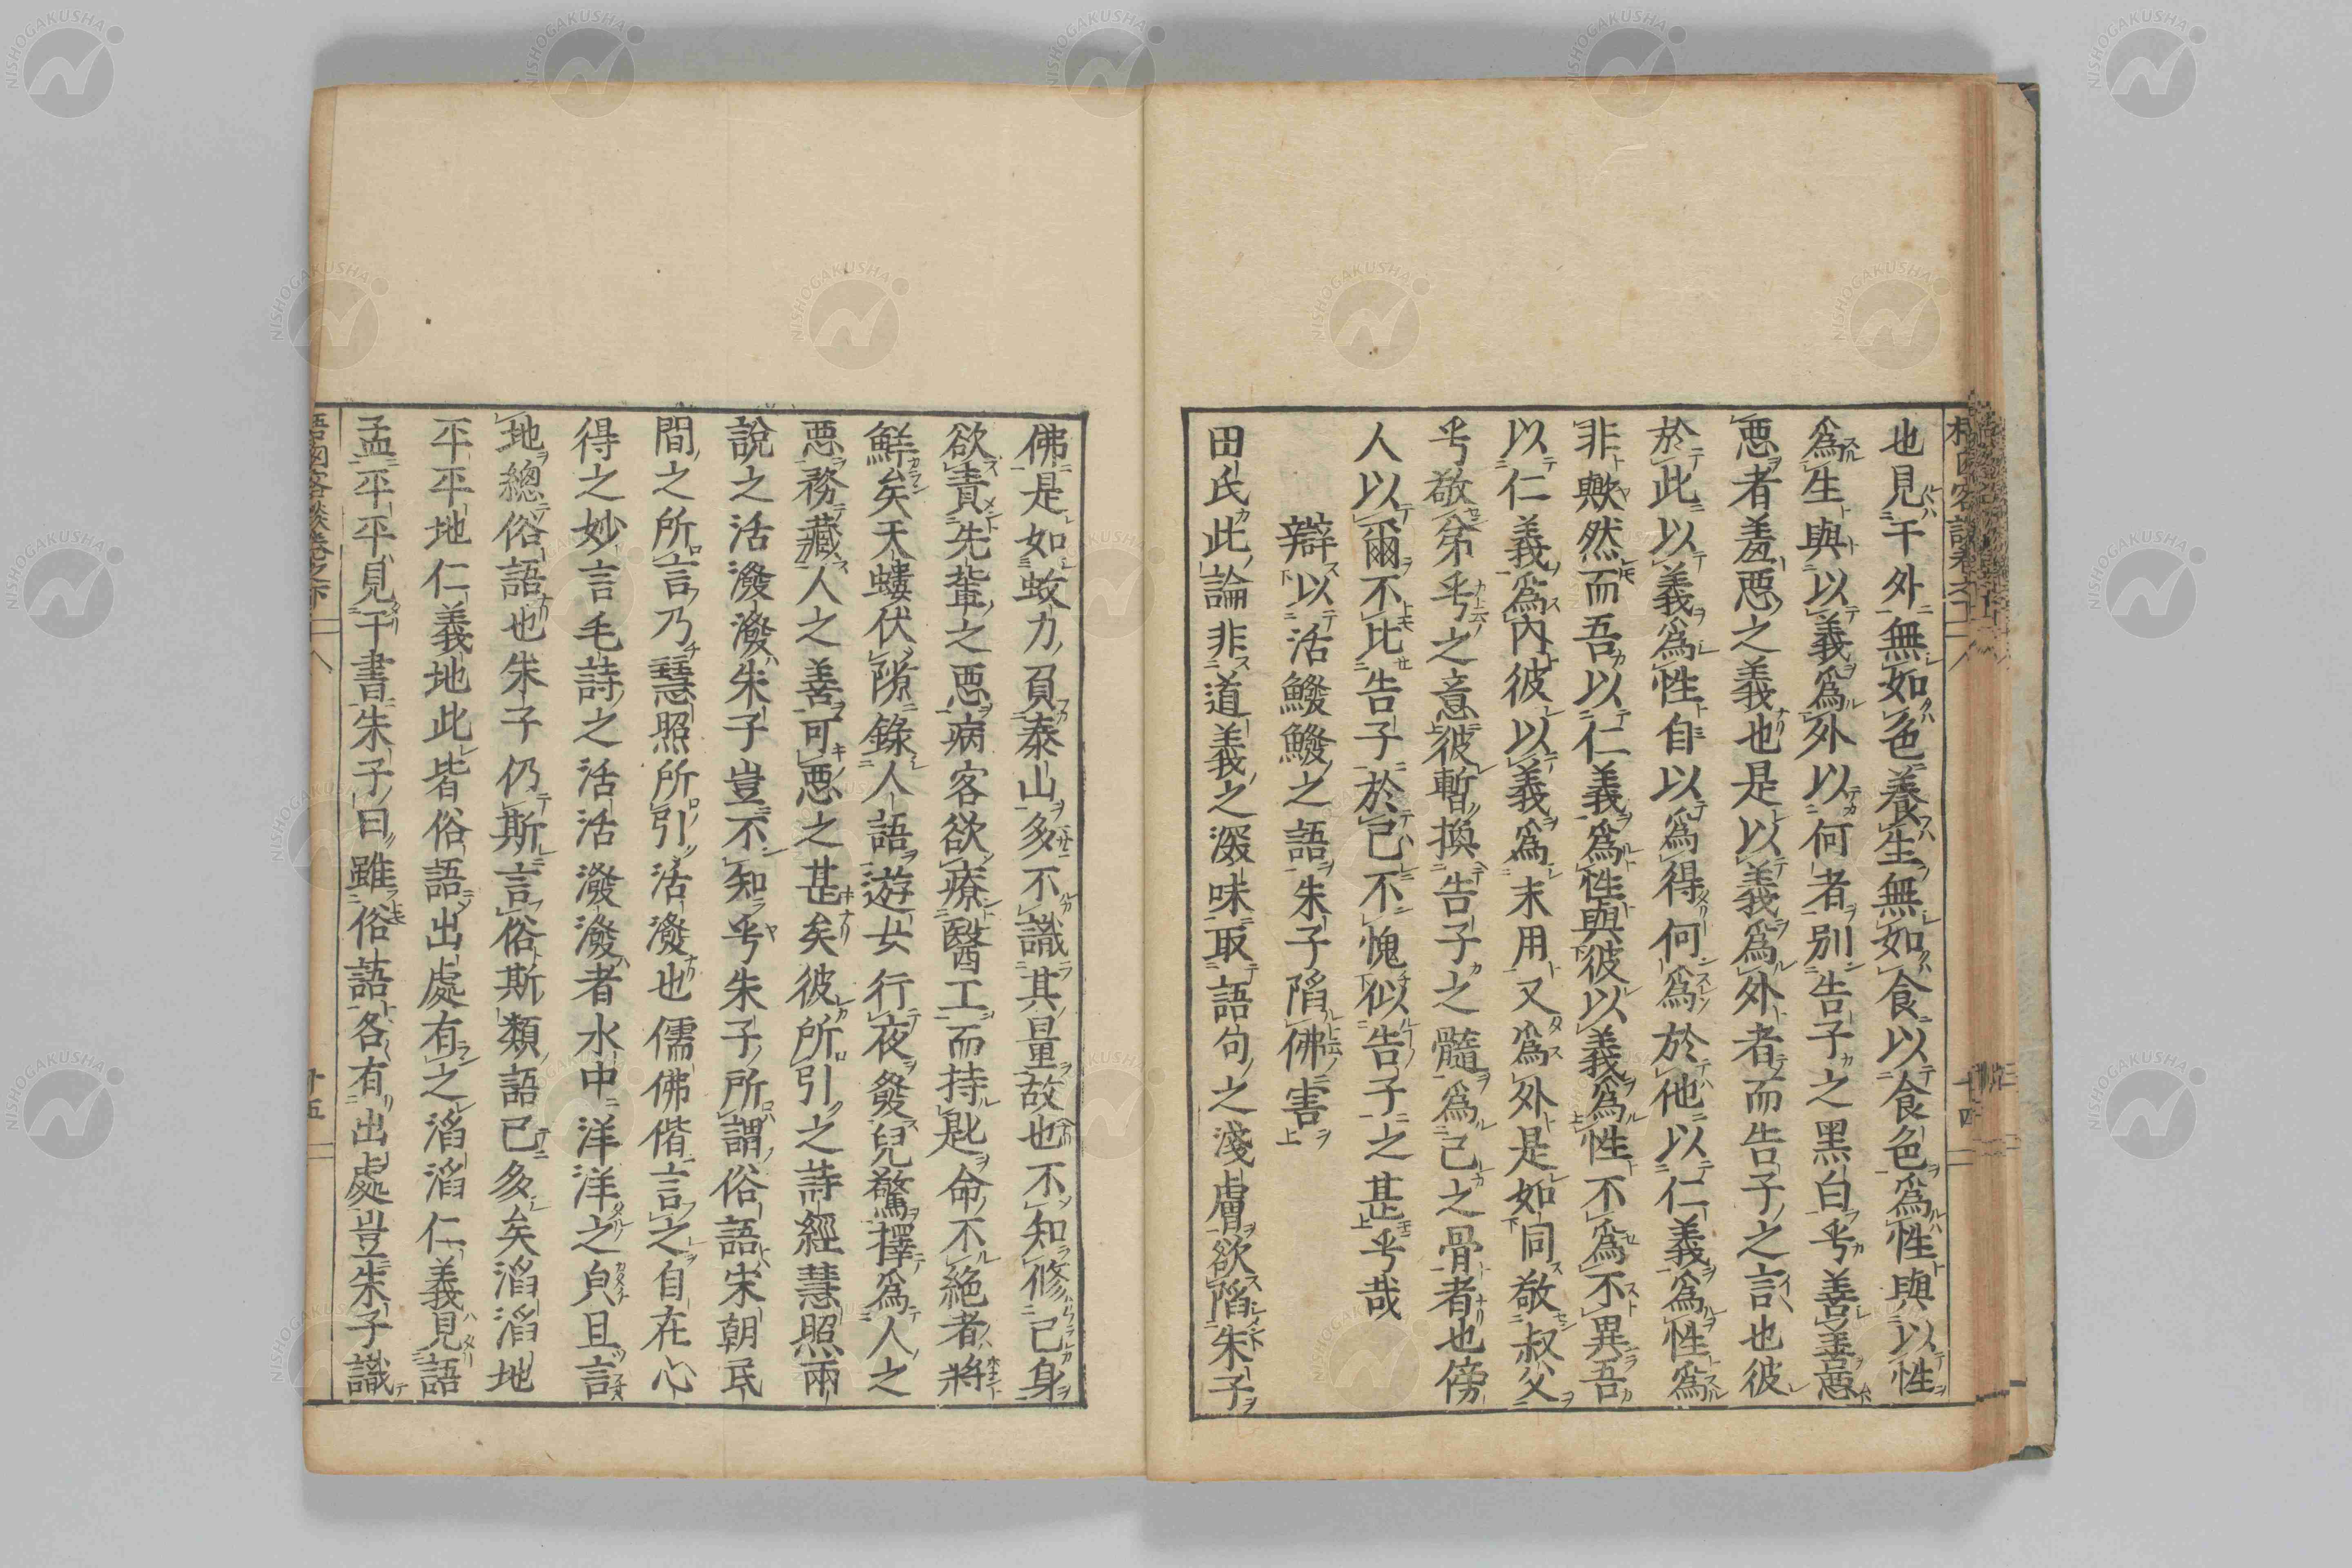 也見于外無如色養生無如食以食色爲性與以性
爲生與以義爲外以何者別告子之黑白乎善善惡
惡者羞惡之義也是以義爲外者而告子之言也彼
於此以義爲性自以爲得何爲於他以仁義爲性爲
非歟然而吾以仁義爲性與彼以義爲性不爲不異吾
以仁義爲內彼以義爲末用又爲外是如同敬叔父
乎敬弟乎之意彼暫換告子之髓爲己之骨者也傍
人以爾不比告子於己不愧似告子之甚乎哉
辯以活鱍鱍之語朱子陷佛害
田氏此論非道義之深味取語句之淺膚欲陷朱子
佛是如蚊力負泰山多不識其量故也不知修己身
欲責先輩之惡病客欲療醫工而持匙命不絕者將
鮮矣天螻伏隙錄人語遊女行夜發兒驚擇爲人之
惡務藏人之善可惡之甚矣彼所引之詩經慧照兩
說之活潑潑朱子豈不知乎朱子所謂俗語宋朝民
間之所言乃慧照所引活潑也儒佛偕言之自在心
得之妙言毛詩之活活潑潑者水中洋洋之皃且言
地總俗語也朱子仍斯言俗斯類語已多矣滔滔地
平平地仁義地此皆俗語出處有之滔滔仁義見語
孟平平見于書朱子曰雖俗語各有出處豈朱子識
梧窗客談卷之下
十五